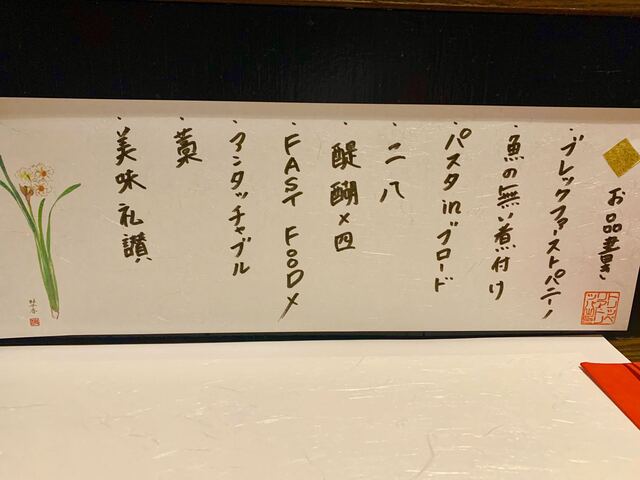 お品書き
・ブレックファーストパニーノ
・魚の無い煮付け
・パスタinブロード
・二八
・醍醐×四
・FAST FOOD X
・アンタッチャブル
・藁
・美味礼讃